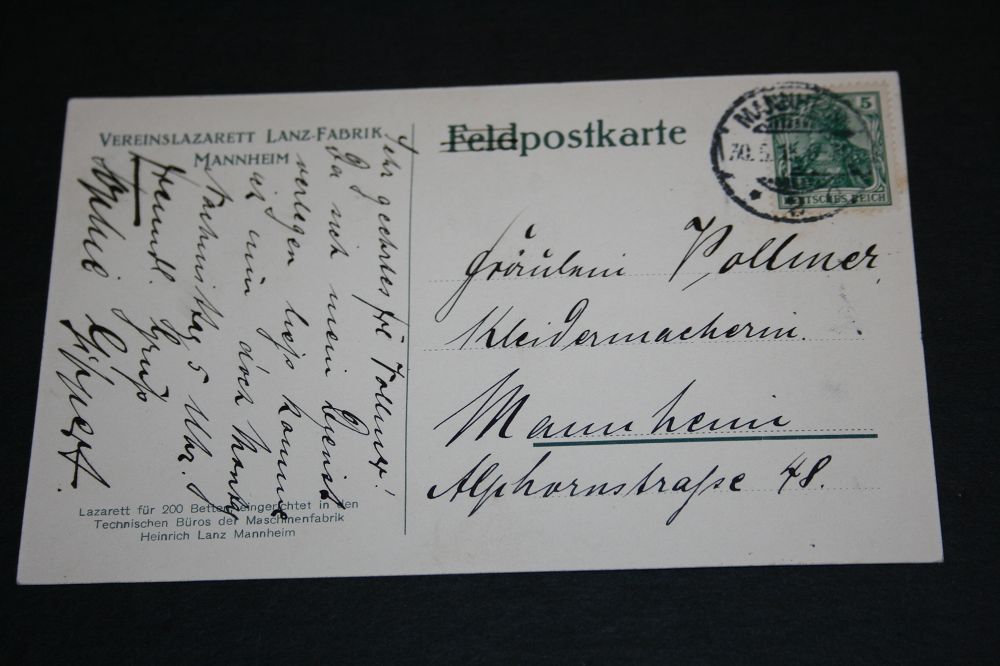 VEREINSLAZARETT LANZ-FABRIK
MANNHEIM
Sehr geehrtes Frl Vollmer!
Da sich mein Dienst
verlegen liess komme
ich nun doch Montag
Nachmittag 5 Uhr.
Freundl. Gruß
Sophie Gippert.
Lazarett für 200 Betten eingerichtet in den
Technischen Büros der Maschinenfabrik
Heinrich Lanz Mannheim
Feldpostkarte
MANNHEIM
30.5.15
5
DEUTSCHES REICH
Fräulein Vollmer
Kleidermacherin.
Mannheim
Alphornstraße 48.